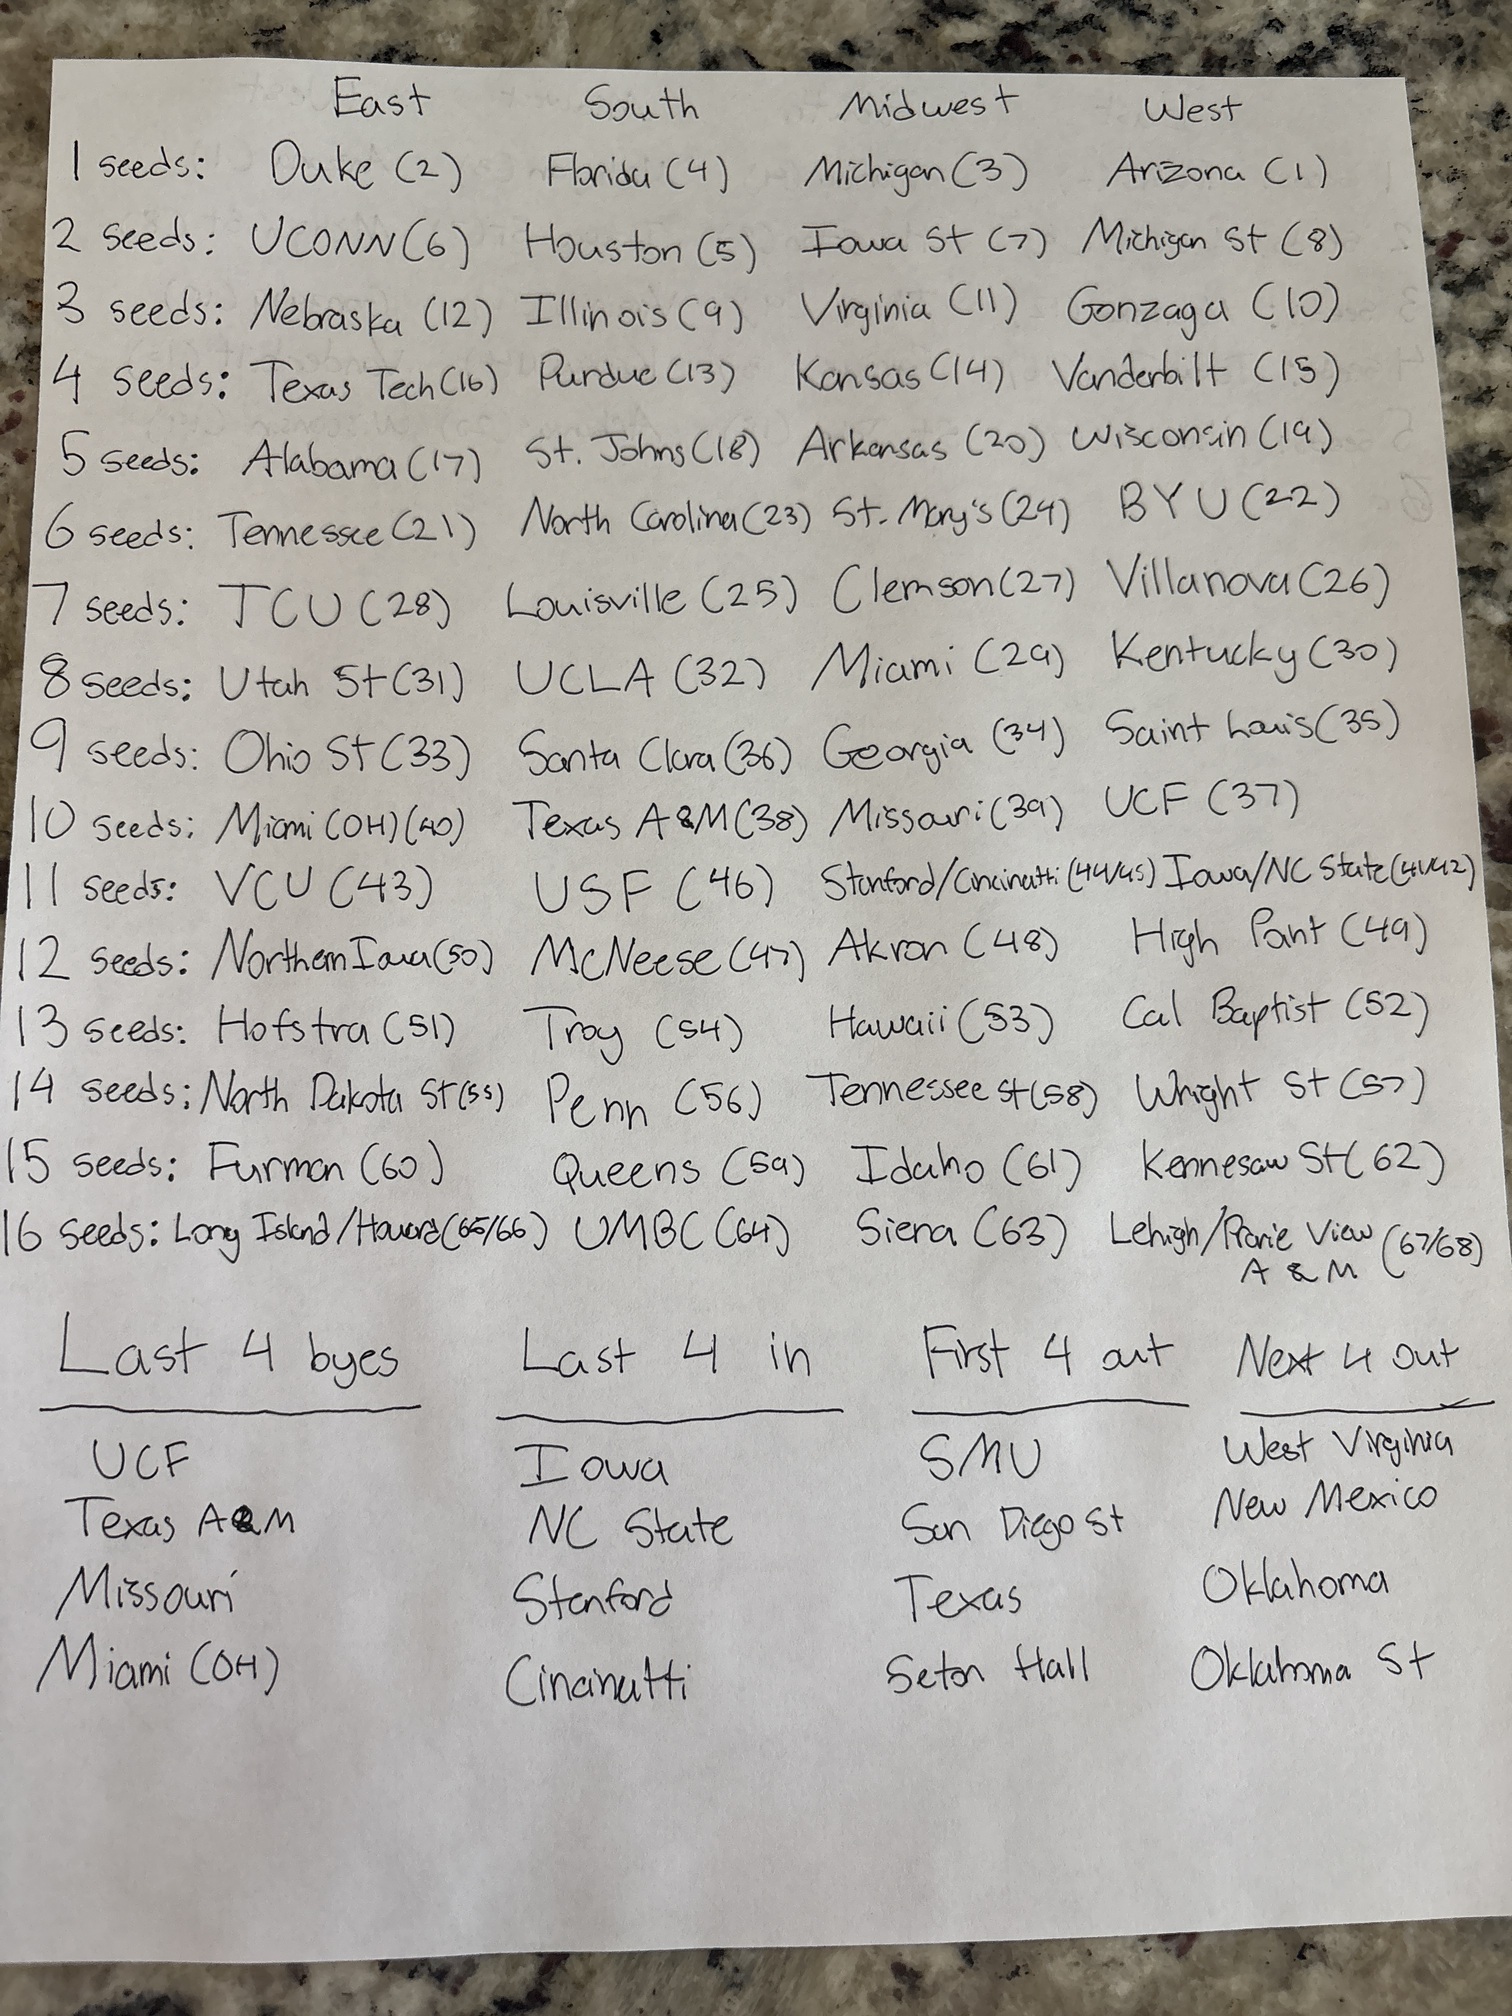 East South Midwest West
1 seeds: Duke (2) Florida (4) Michigan (3) Arizona (1)
2 seeds: UCONN (6) Houston (5) Iowa St (7) Michigan St (8)
3 seeds: Nebraska (12) Illinois (9) Virginia (11) Gonzaga (10)
4 seeds: Texas Tech (16) Purdue (13) Kansas (14) Vanderbilt (15)
5 seeds: Alabama (17) St. Johns (18) Arkansas (20) Wisconsin (19)
6 seeds: Tennessee (21) North Carolina (23) St. Mary's (24) BYU (22)
7 seeds: TCU (28) Louisville (25) Clemson (27) Villanova (26)
8 seeds: Utah St (31) UCLA (32) Miami (29) Kentucky (30)
9 seeds: Ohio St (33) Santa Clara (36) Georgia (34) Saint Louis (35)
10 seeds: Miami (OH) (40) Texas A&M (38) Missouri (39) UCF (37)
11 seeds: VCU (43) USF (46) Stanford/Cincinatti (44/45) Iowa/NC State (41/42)
12 seeds: Northern Iowa (50) McNeese (47) Akron (48) High Point (49)
13 seeds: Hofstra (51) Troy (54) Hawaii (53) Cal Baptist (52)
14 seeds: North Dakota St (55) Penn (56) Tennessee St (58) Wright St (57)
15 seeds: Furman (60) Queens (59) Idaho (61) Kennesaw St (62)
16 seeds: Long Island/Howard (65/66) UMBC (64) Siena (63) Lehigh/Prarie View (67/68)
A & M
Last 4 byes Last 4 in First 4 out Next 4 out
UCF Iowa SMU West Virginia
Texas A&M NC State San Diego St New Mexico
Missouri Stanford Texas Oklahoma
Miami (OH) Cincinatti Seton Hall Oklahoma St